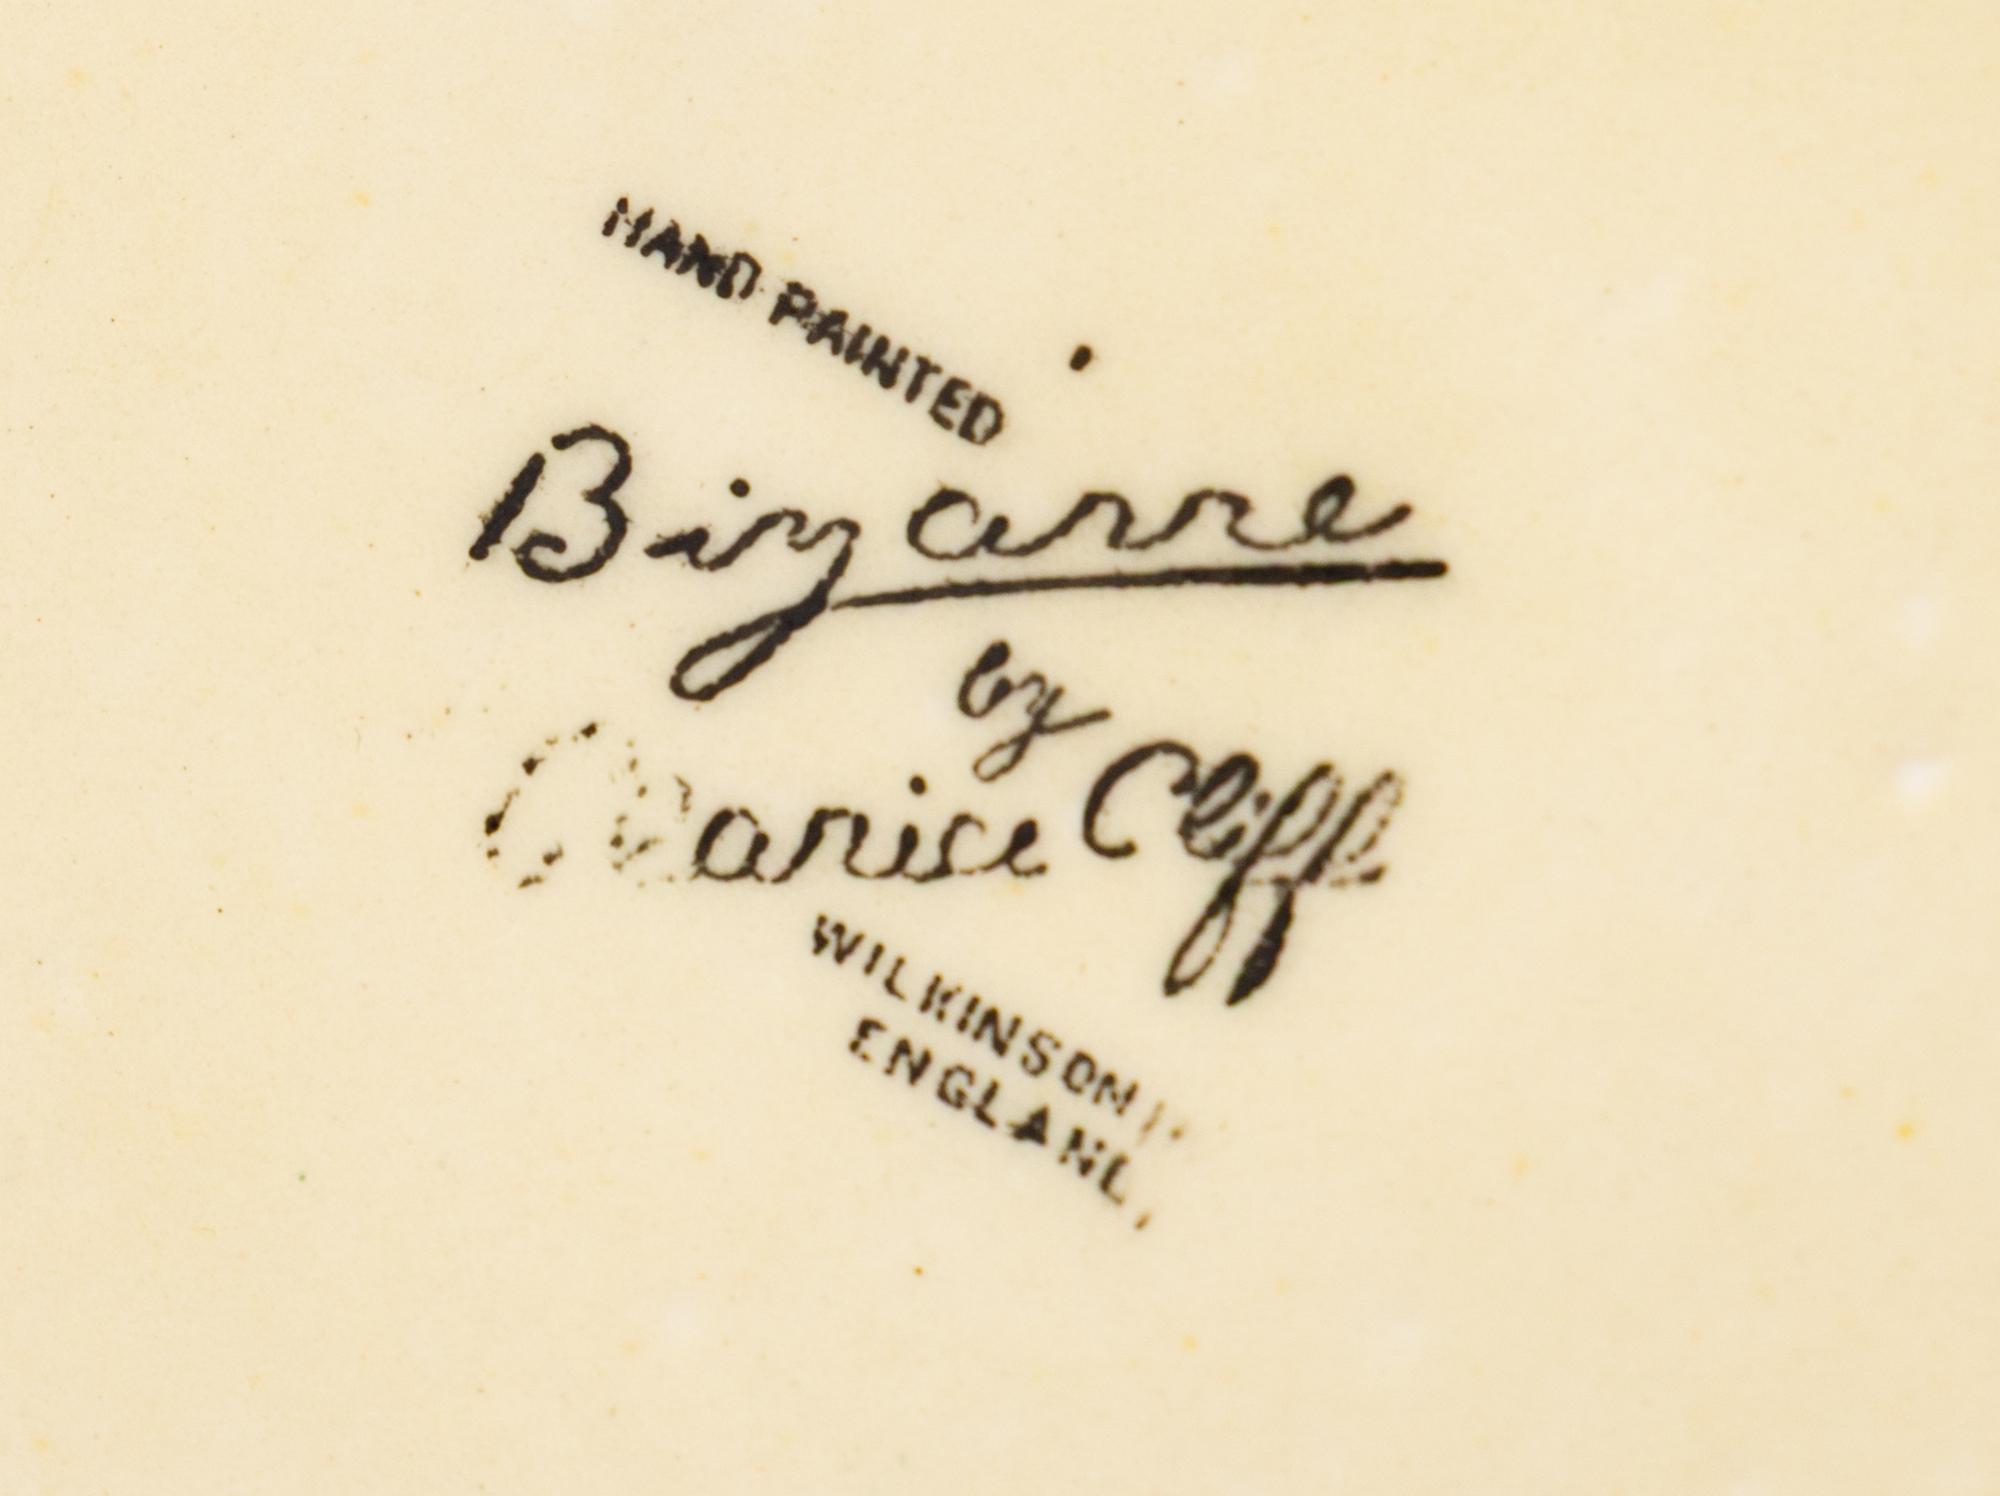 HAND PAINTED
Bizarre
by
Clarice Cliff
WILKINSON
ENGLAND